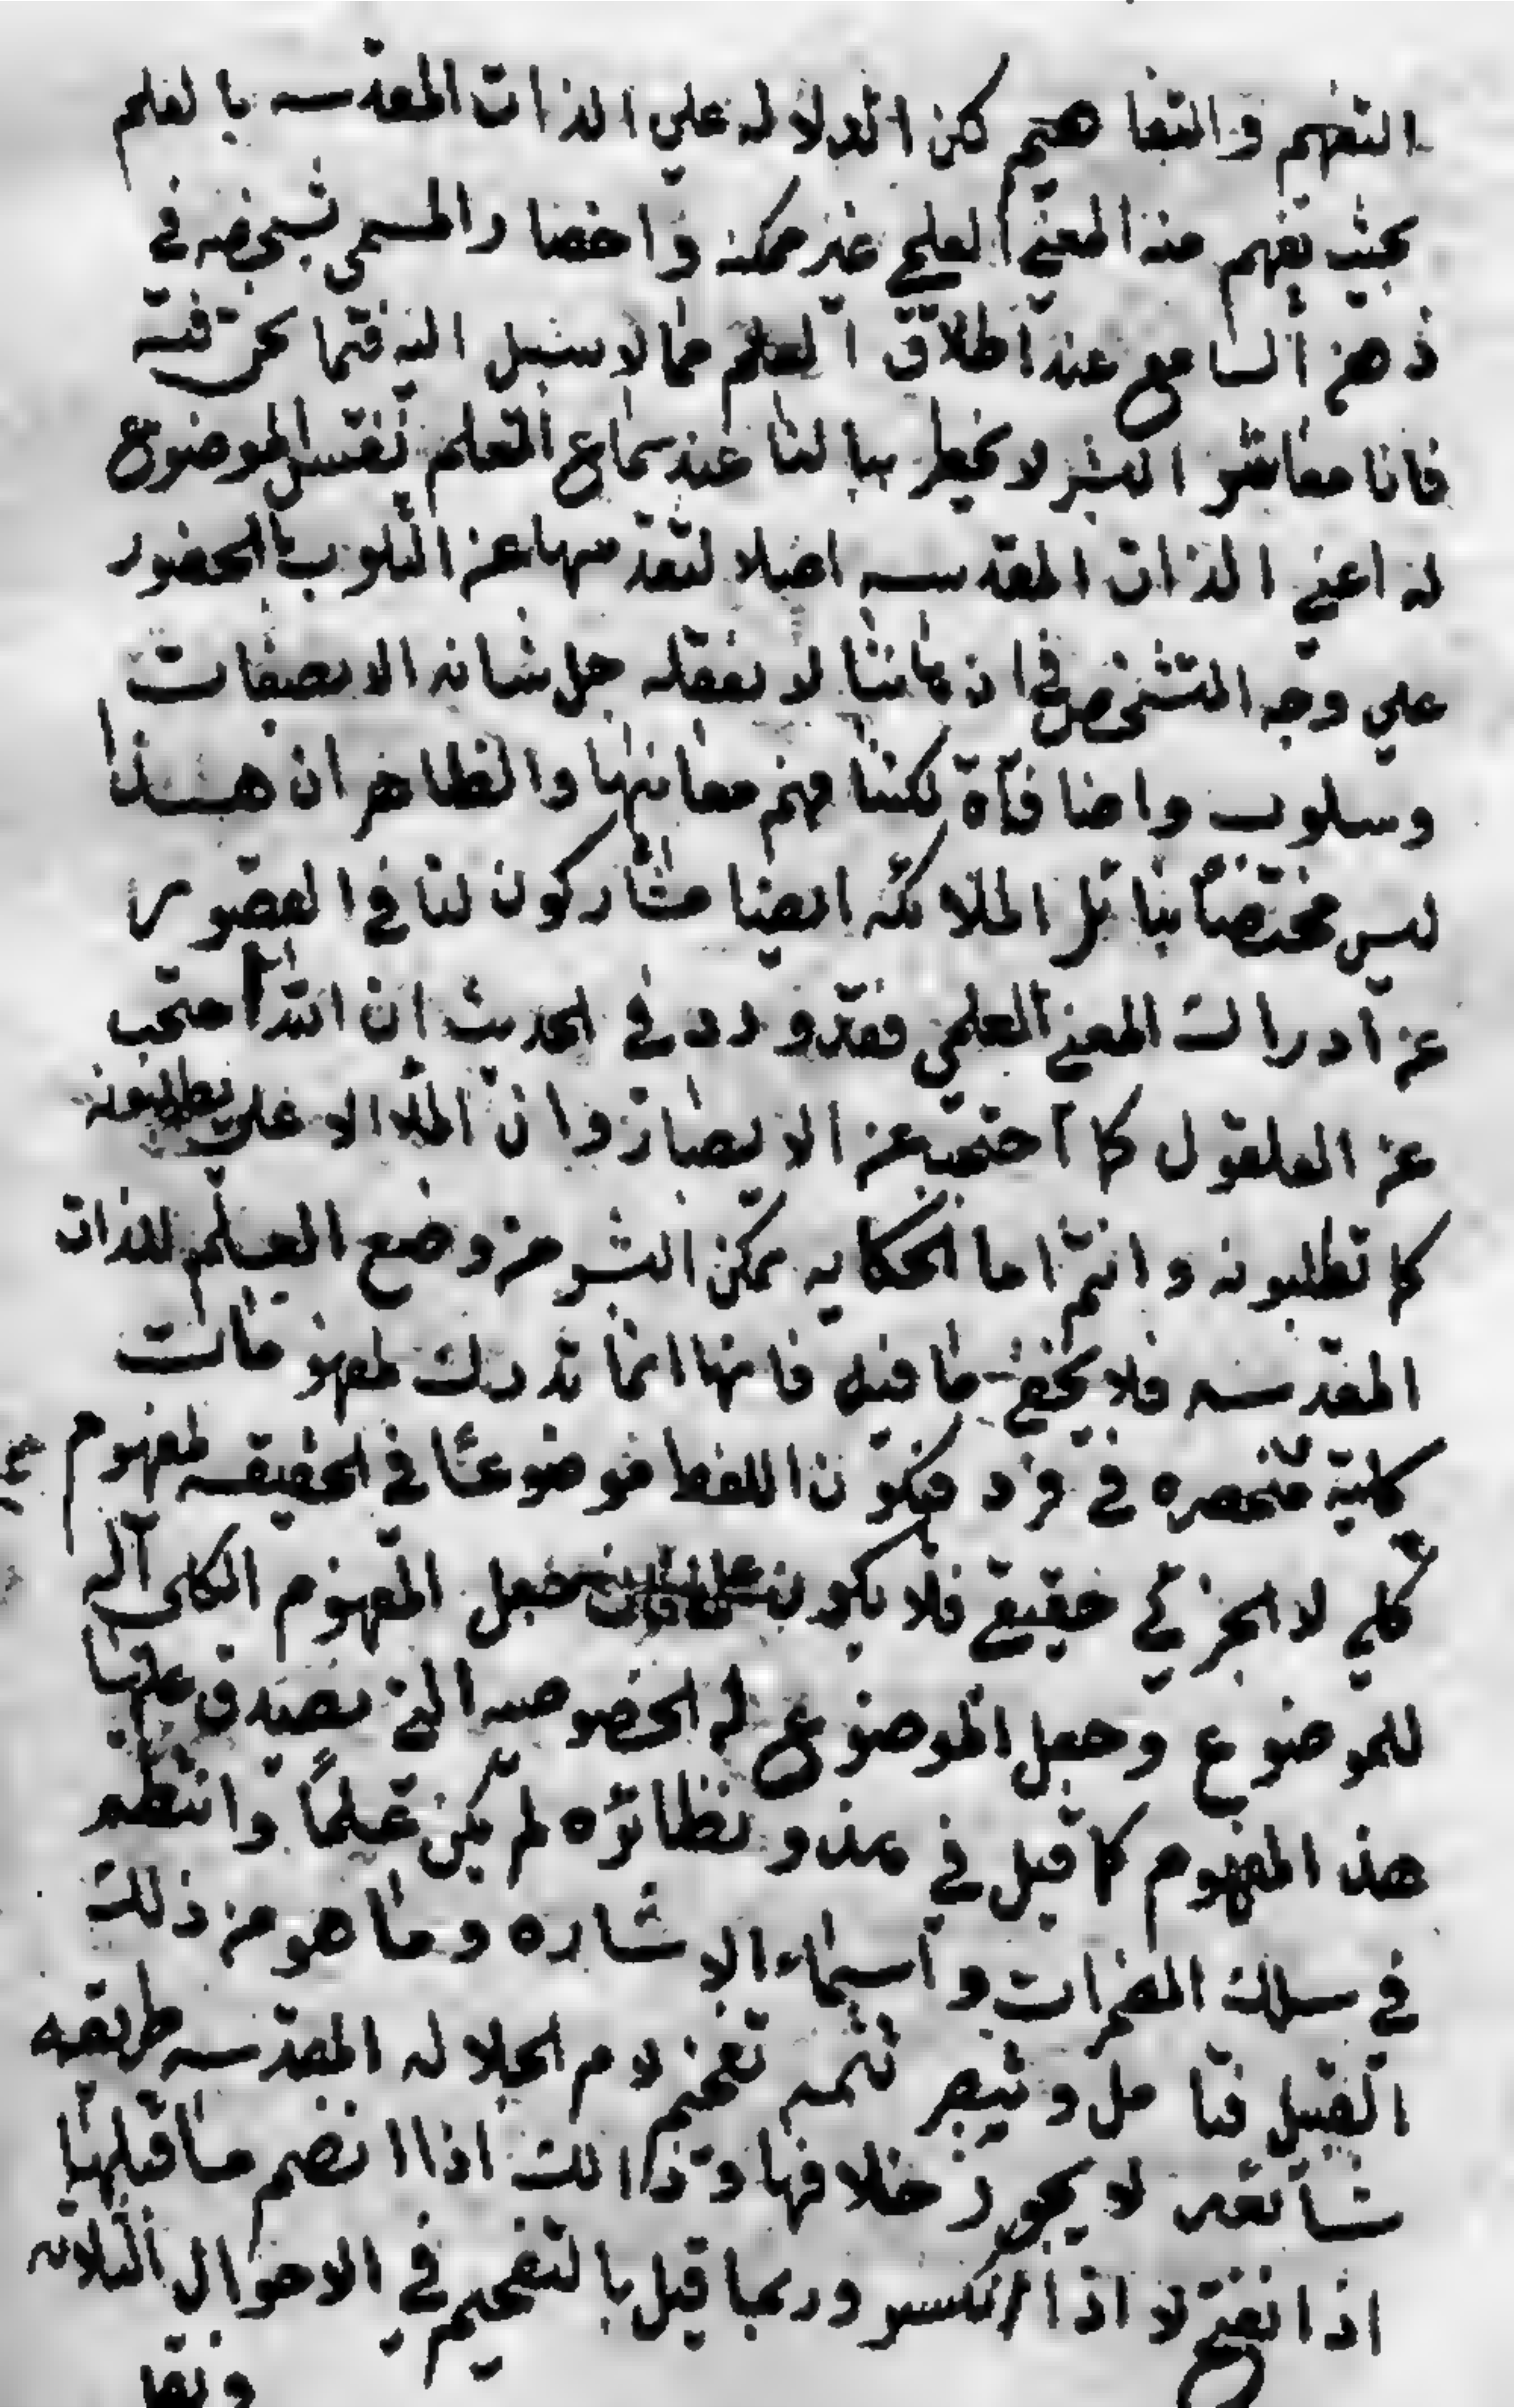 التفهم والتفاهيم لكن الدلاله علي الذات المقدسه بالعلم
بحيث يفهم منه المعني العلمي غير ممكنه واحضار المسمى بشخصه في
ذهن السامع عند اطلاق العلم مما لا سبيل اليه فيما نحن فيه
فانا معاشر البشر لا يخطر ببالنا عند سماع العلم نفس الموضوع
له اعني الذات المقدسه اصلا لتقدسها عن التلوب بالحضور
علي وجه التشخص في اذهاننا لا نعقله جل شانه الا بصفات
وسلوب واضافاة يمكننا فهم معانيها والظاهر ان هذا
ليس مختصا بنا بل الملائكه ايضا مشاركون لنا في القصور
عن ادراك المعني العلمي فقد ورد في الحديث ان الله احتجب
عن العلقول كما احتجب عن الابصار وان الملأ الا علي يطلبونه
كما تطلبونه وانتم اما الحكايه تمكن البشر من وضع العلم للذات
المقدسه فلا يخفي ما فيه فانها انما تدرك لمفهومات
كلية منحصره في فرد فيكون اللفظ موضوعا في الحقيقه لمفهوم
كلي لا لجزئي حقيقي فلا يكون فجعل المفهوم الكلي آلة
للموضوع وجعل الموضوع له الخصوصيه التي يصدق عليها
هذا المفهوم كما قيل في هذا ونظائره لم يكن علما وانتظم
في سلك المضمرات واسماء الاشاره وما هو من ذلك
القبيل فتا مل وتبصر تتمه تفخيم لام الجلاله المقدسه طريقه
شائعه لا يجوز خلافها وذالك اذا انضم ما قبلها
اذا نفتح لا اذا انكسر وربما قيل بالتفخيم في الاحوال الثلاثه
ونقل